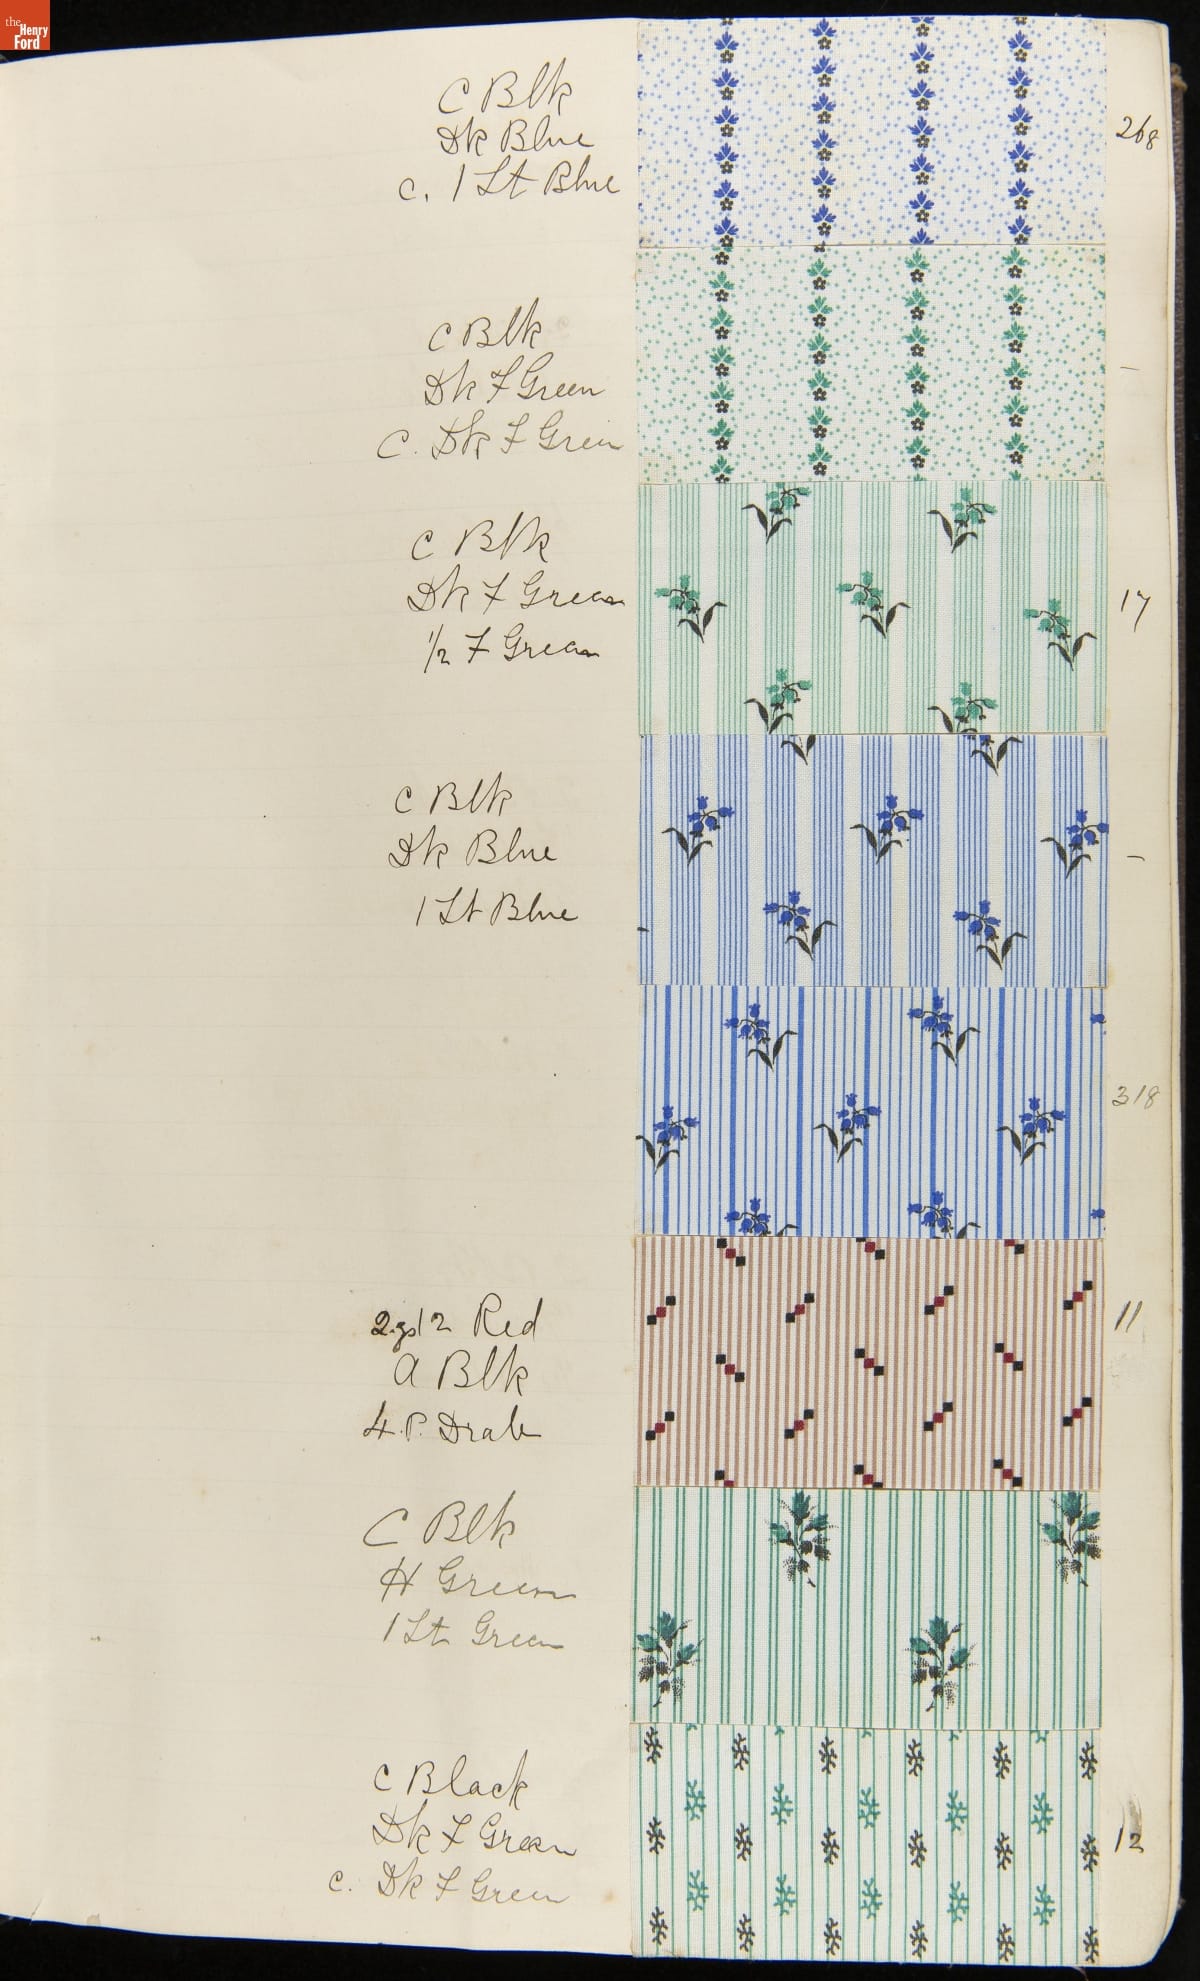 the
Henry
Ford
C Blk
Dk Blue
c. 1 Lt Blue
268
C Blk
Dk F Green
C. Dk F Green
–
C Blk
Dk F Green
1/2 F Green
17
C Blk
Dk Blue
1 Lt Blue
–
318
12 Red
a Blk
4.P. Drab
11
C Blk
H Green
1 Lt Green
C Black
Dk F Green
c. Dk F Green
12